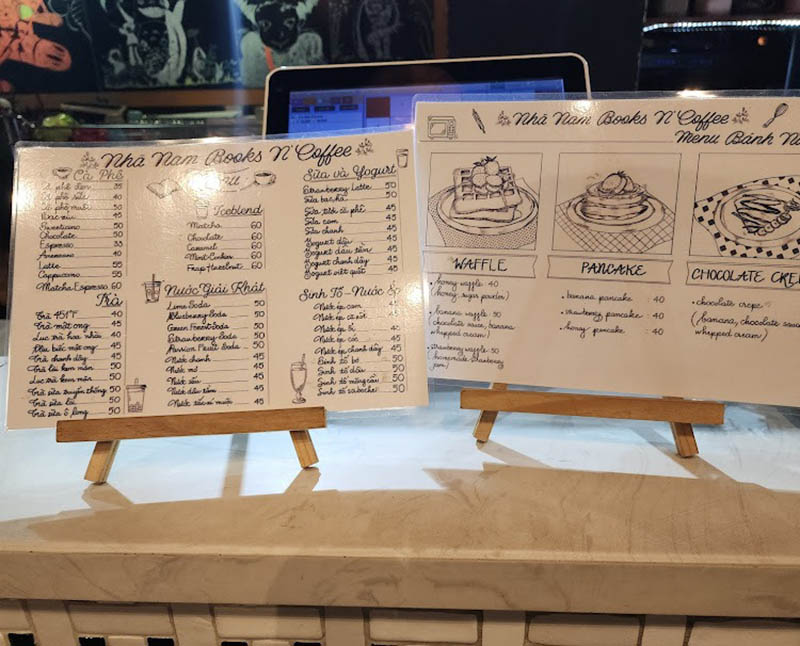 Nhã Nam Books N' Coffee
Menu
Cà Phê
Cà phê đen 35
Cà phê sữa 40
Cà phê muối 50
Bạc xỉu 45
Sweeticano 50
Chocolate 50
Espresso 35
Americano 40
Latte 55
Cappuccino 55
Matcha Espresso 60
Trà
Trà 451°F 40
Trà mật ong 45
Lục trà hoa nhài 40
Phúc bồn mật ong 45
Trà chanh dây 45
Trà lài kem mặn 50
Lục trà kem mặn 50
Trà sữa truyền thống 50
Trà sữa lài 50
Trà sữa ô long 50
Iceblend
Matcha 60
Chocolate 60
Caramel 60
Mint-Cookies 60
Frap-Hazelnut 60
Nước Giải Khát
Lime Soda 50
Blueberry Soda 50
Green Forest Soda 50
Strawberry Soda 50
Passion Fruit Soda 50
Nước chanh 45
Nước mơ 45
Nước sấu 45
Nước dâu tằm 45
Nước tắc xí muội 45
Sữa và Yogurt
Strawberry Latte 50
Sữa bạc hà 50
Sữa tươi cà phê 45
Sữa cam 45
Sữa chanh 45
Yogurt dâu 45
Yogurt dâu tằm 45
Yogurt chanh dây 45
Yogurt việt quất 45
Sinh Tố - Nước
Nước ép cam 45
Nước ép cà rốt 45
Nước ép ổi 45
Nước ép cóc 45
Nước ép chanh dây 45
Sinh tố bơ 45
Sinh tố dâu 45
Sinh tố mãng cầu 45
Sinh tố saboche 45
Nhã Nam Books N' Coffee
Menu Bánh
WAFFLE
• honey waffle 40
(honey, sugar powder)
• banana waffle 50
(chocolate sauce, banana
whipped cream)
• strawberry waffle 50
(homemade strawberry
jam)
PANCAKE
• banana pancake : 40
• strawberry pancake : 40
• honey pancake : 40
CHOCOLATE
• chocolate crepe
(banana, chocolate
whipped cream)